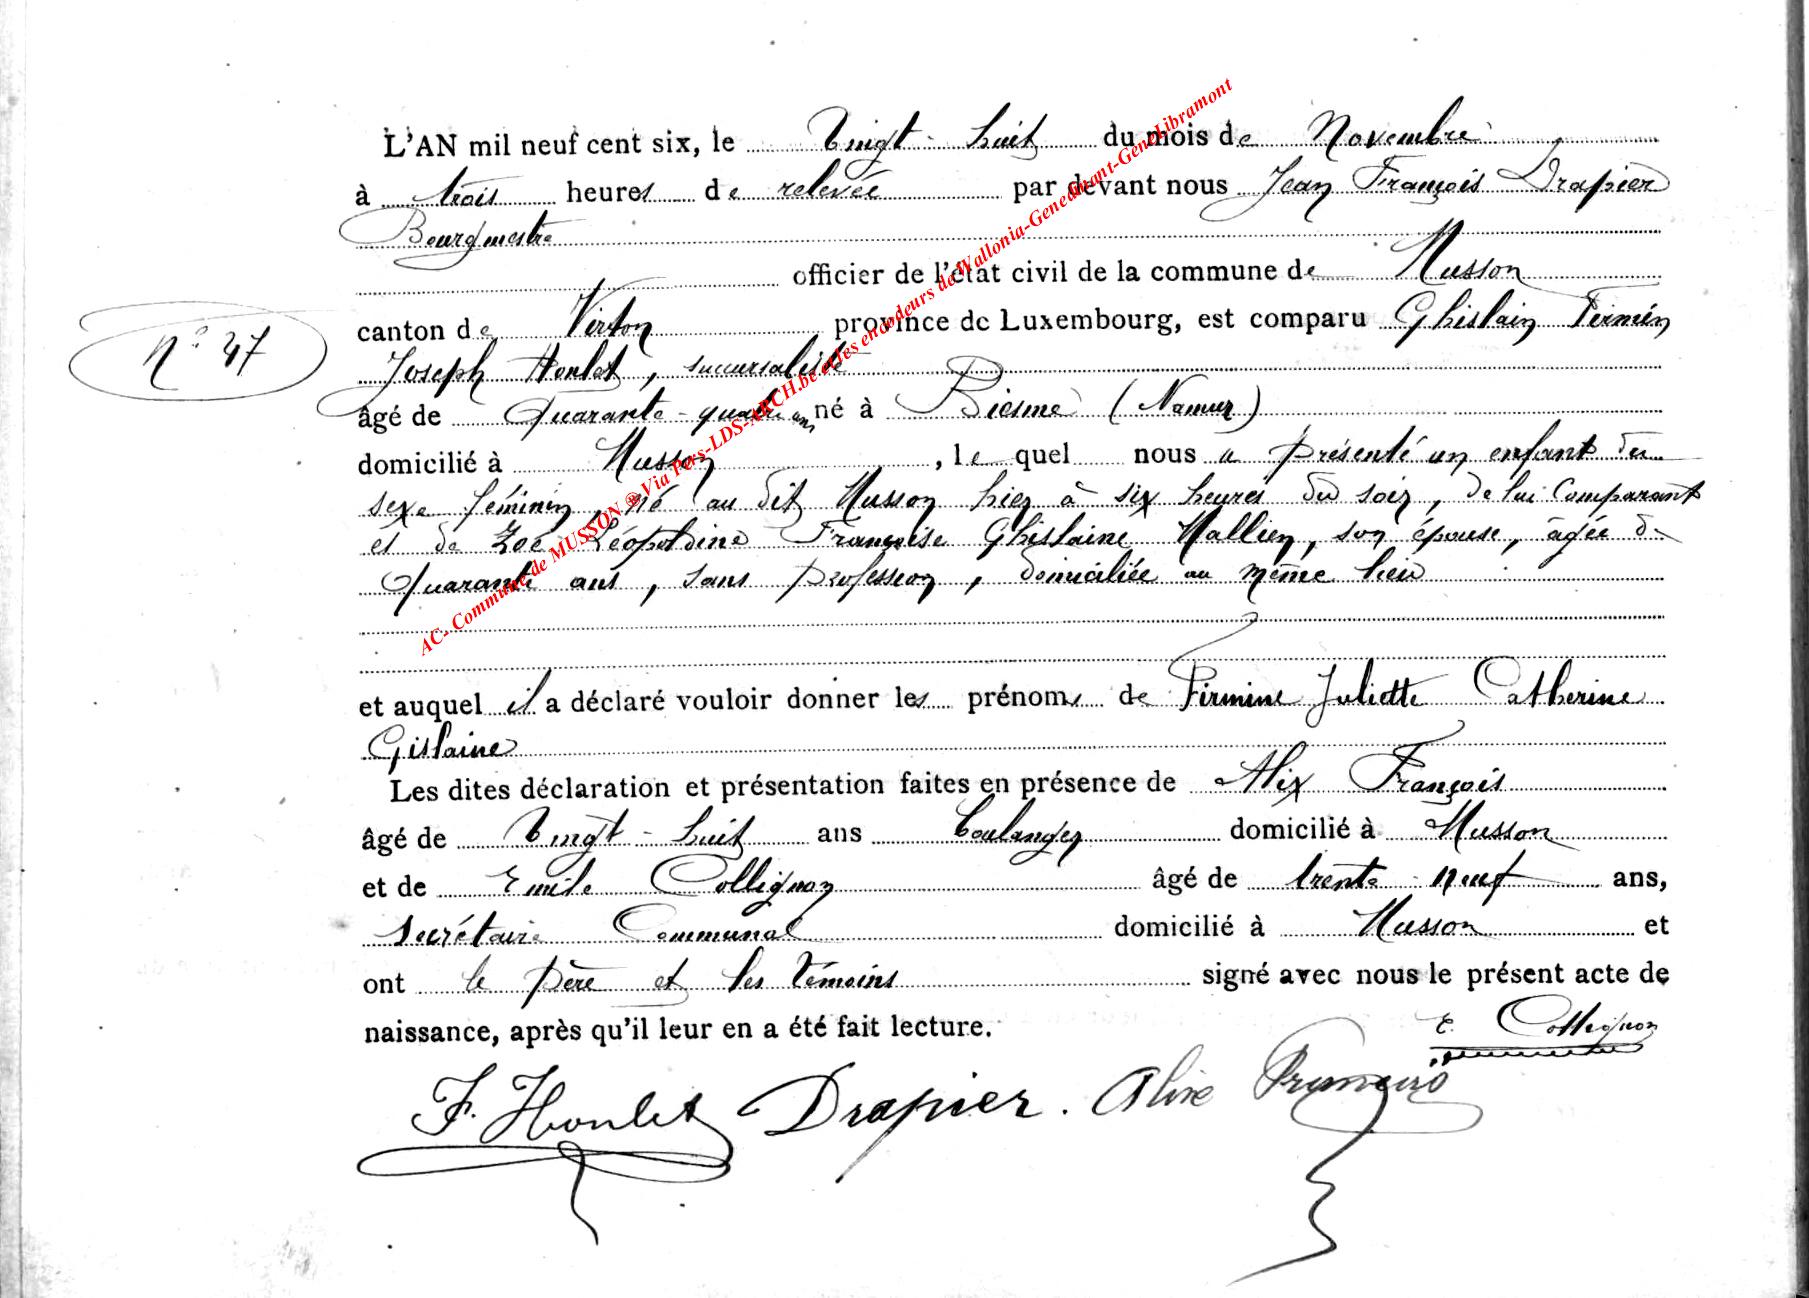 L'AN mil neuf cent six, le vingt-huit du mois de Novembre
à trois heures de relevée par devant nous Jean François Drapier
Bourgmestre
officier de l'état civil de la commune de Musson
N° 47
canton de Virton province de Luxembourg, est comparu Ghislain Firmin
Joseph Houlet, succursaliste
âgé de Quarante-quatre ans né à Biesme (Namur)
domicilié à Musson, le quel nous a présenté un enfant du
sexe féminin, né au dit Musson hier à six heures du soir, de lui Comparant
et de Zoé Léopoldine Françoise Ghislaine Mallien, son épouse, âgée de
Quarante ans, sans profession, domiciliée au même lieu
et auquel il a déclaré vouloir donner les prénoms de Firmine Juliette Catherine
Gislaine
Les dites déclaration et présentation faites en présence de Alix François
âgé de vingt-huit ans boulanger domicilié à Musson
et de Emile Collignon âgé de trente-neuf ans,
secrétaire Communal domicilié à Musson et
ont le père et les témoins signé avec nous le présent acte de
naissance, après qu'il leur en a été fait lecture.
E. Collignon
F. Houlet Drapier. Alix François
AC- Commune de MUSSON ® Via Pers-LDS-ARCH.be et les encodeurs de Wallonia-Genedinant-GeneLibramont